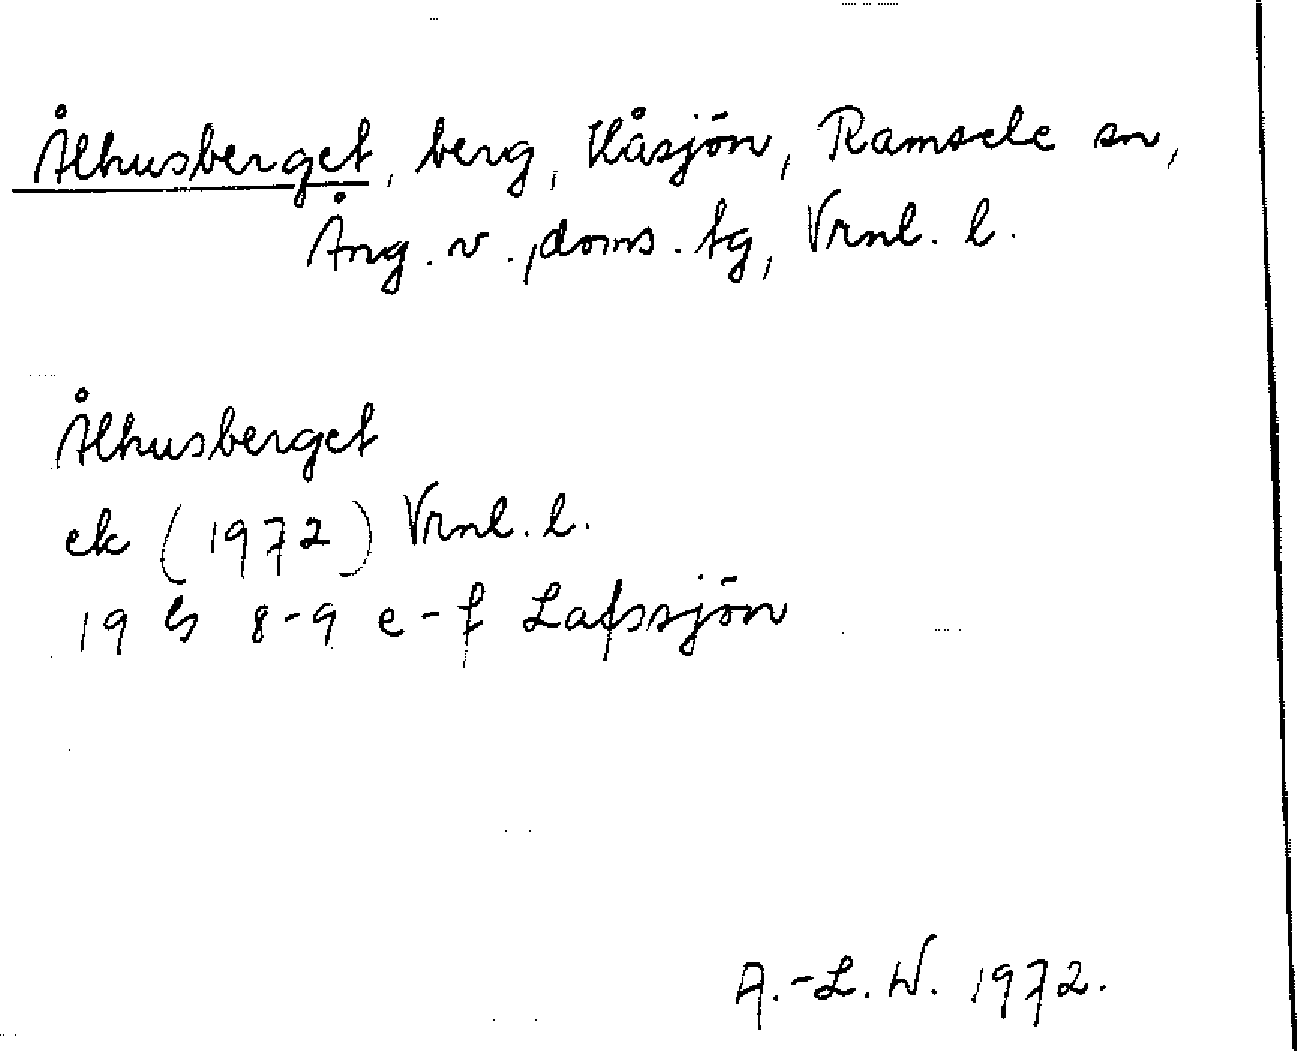 Ålhusberget, berg, Kåsjön, Ramsele sn,
Ång. v., doms. tg, Vrnl. l.
Ålhusberget
ek (1972) Vrnl. l.
19 G 8-9 e-f Lafssjön
A.-L. W. 1972.